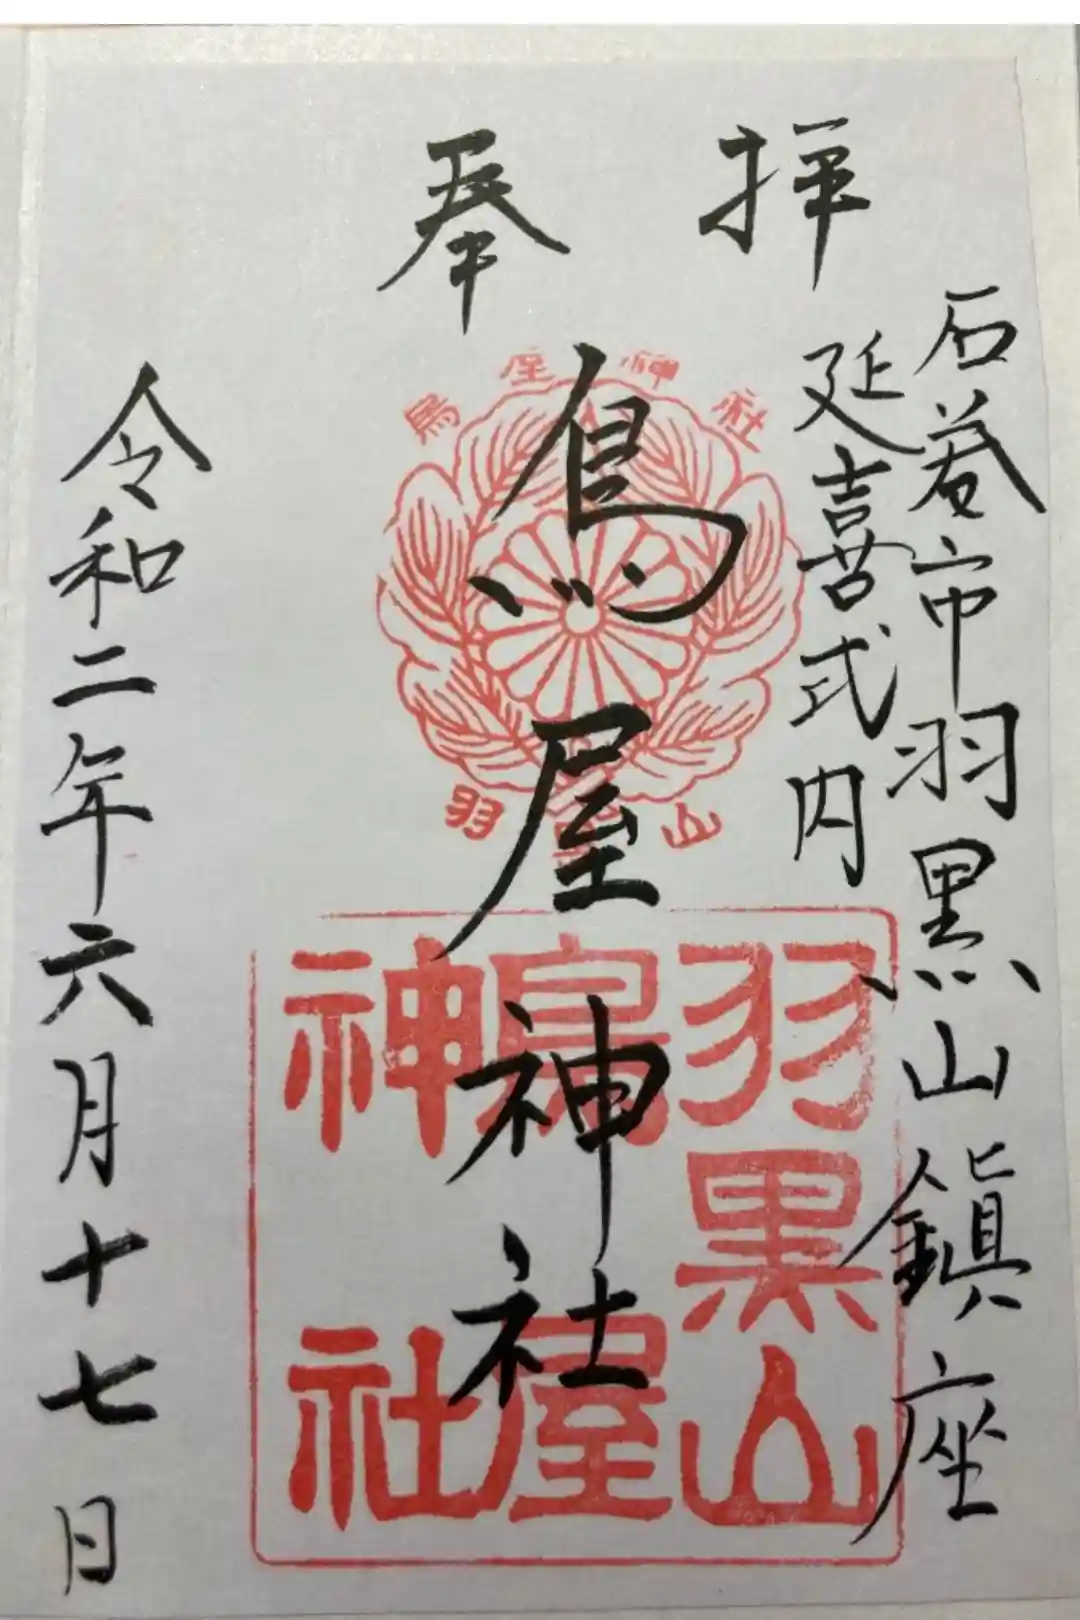 奉拝
石巻市羽黒山鎭座
延喜式内
鳥屋神社
令和二年六月十七日
鳥屋神社
羽黒山
羽黒山
鳥屋
神社